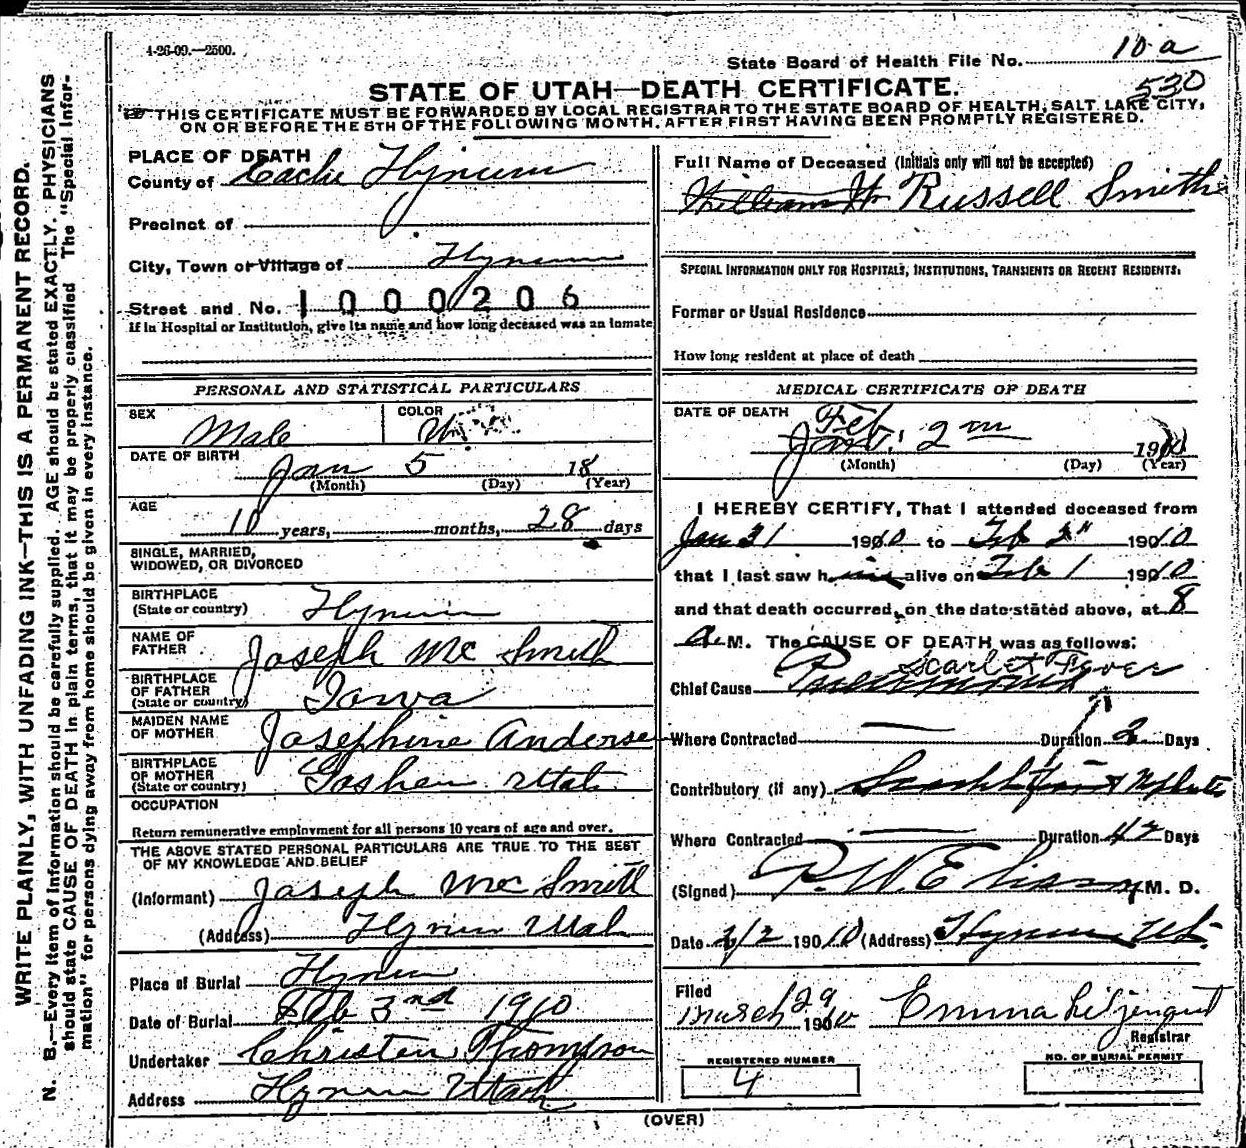 4-26-09.—2500.
State Board of Health File No. 10 a
530
STATE OF UTAH—DEATH CERTIFICATE.
THIS CERTIFICATE MUST BE FORWARDED BY LOCAL REGISTRAR TO THE STATE BOARD OF HEALTH, SALT LAKE CITY,
ON OR BEFORE THE 5TH OF THE FOLLOWING MONTH, AFTER FIRST HAVING BEEN PROMPTLY REGISTERED.
WRITE PLAINLY, WITH UNFADING INK—THIS IS A PERMANENT RECORD.
N. B.—Every item of information should be carefully supplied. AGE should be stated EXACTLY. PHYSICIANS
should state CAUSE OF DEATH in plain terms, that it may be properly classified. The "Special Infor-
mation" for persons dying away from home should be given in every instance.
PLACE OF DEATH
County of Cache Hyrum
Precinct of
City, Town or Village of Hyrum
Street and No. 1000206
If in Hospital or Institution, give its name and how long deceased was an inmate
PERSONAL AND STATISTICAL PARTICULARS
SEX Male
COLOR W
DATE OF BIRTH
Jan 5 18
(Month) (Day) (Year)
AGE
10 years, months, 28 days
SINGLE, MARRIED,
WIDOWED, OR DIVORCED
BIRTHPLACE
(State or country) Hyrum
NAME OF
FATHER Joseph Mc Smith
BIRTHPLACE
OF FATHER
(State or country) Iowa
MAIDEN NAME
OF MOTHER Josephine Anderse
BIRTHPLACE
OF MOTHER
(State or country) Goshen Utah
OCCUPATION
Return remunerative employment for all persons 10 years of age and over.
THE ABOVE STATED PERSONAL PARTICULARS ARE TRUE TO THE BEST
OF MY KNOWLEDGE AND BELIEF
(Informant) Joseph Mc Smith
(Address) Hyrum Utah
Place of Burial Hyrum
Date of Burial Feb 3nd 1910
Undertaker Christen Thompson
Address Hyrum Utah
Full Name of Deceased (Initials only will not be accepted)
William H Russell Smith
SPECIAL INFORMATION ONLY FOR HOSPITALS, INSTITUTIONS, TRANSIENTS OR RECENT RESIDENTS.
Former or Usual Residence
How long resident at place of death
MEDICAL CERTIFICATE OF DEATH
DATE OF DEATH Feb
Jan 2 1910
(Month) (Day) (Year)
I HEREBY CERTIFY, That I attended deceased from
Jan 31 1910 to Feb 2" 1910
that I last saw him alive on Feb 1 1910
and that death occurred, on the date stated above, at 8
a M. The CAUSE OF DEATH was as follows:
Scarlet Fever
Chief Cause Pneumonia
Where Contracted — Duration 2 Days
Contributory (if any) Scarlet fever & Nephritis
Where Contracted — Duration Days
(Signed) M. D.
Date 2/2 1910 (Address) Hyrum Ut.
Filed
March 29 1910 Emma Liljenquist
Registrar
REGISTERED NUMBER
4
NO. OF BURIAL PERMIT
(OVER)